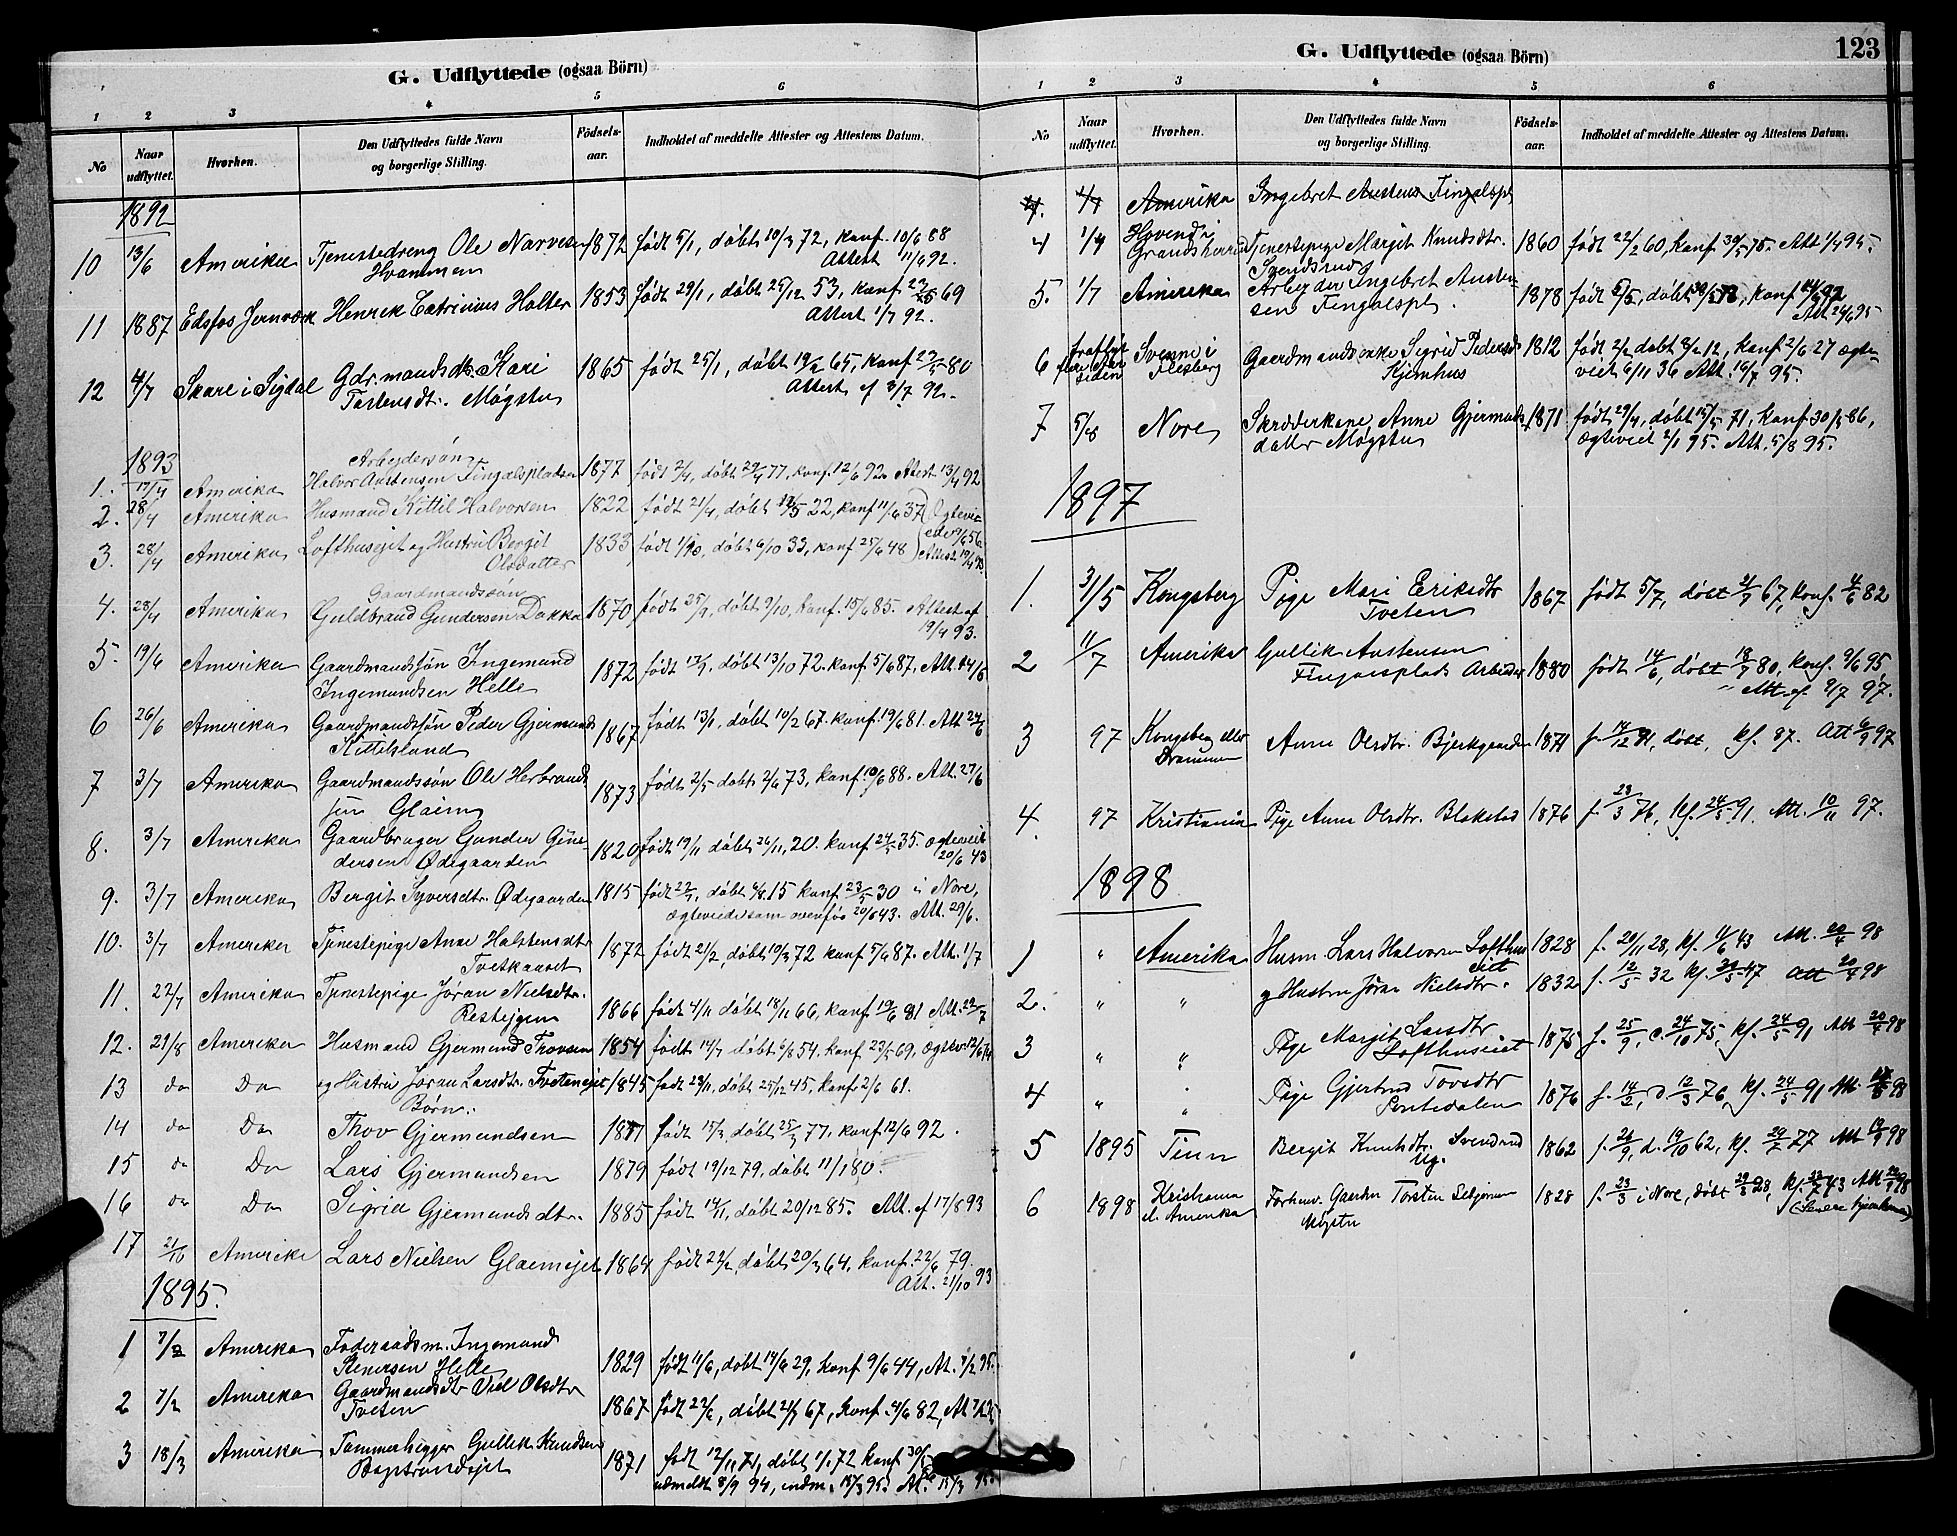 G. Udflyttede (ogsaa Börn)
1 2 3 4 5 6
No
Naar udflyttet.
Hvorhen.
Den Udflyttedes fulde Navn
og borgerlige Stilling.
Födsels-
aar.
Indholdet af meddelte Attester og Attestens Datum.
1892
10 13/6 Amerika Tjenestedreng Ole Narvesen 1872 født 5/1, døbt 10/3 72, konf. 10/6 88
Hvammen Attest 11/6 92.
11 1887 Edsfos Jernværk Henrik Catrinius Holter 1853 født 29/1, døbt 25/12 53, konf 69
Attest 1/7 92.
12 4/7 Skare i Sigdal Gdr.mandsdtr. Kari 1865 født 25/1, døbt 19/2 65, konf 23/5 80
Torstensdtr. Møgstu Attest af 3/7 92.
1893
Arbejdersøn
1. 17/4 Amerika Halvor Austensen Fingalspladsen 1877 født 2/4, døbt 29/4 77, konf. 12/6 92. Attest 13/4 92
2. 28/4 Amerika Husmand Kittil Halvorsen 1822 født 21/4, døbt 12/5 22, konf 11/6 37 Ægtevi-
3. 28/4 Amerika Lofthusejet og Hustru Bergit 1833 født 1/10, døbt 6/10 33, konf 25/6 48
Olsdatter
Gaardmandssøn
4. 28/4 Amerika Guldbrand Gundersen Dokka 1870 født 25/9, døbt 9/10, konf. 15/6 85. Attest af
19/4 93.
5. 19/6 Amerika Gaardmandssøn Ingemund 1872 født 13/9, døbt 13/10 72. konf. 5/6 87, Att. 14/6
Ingemundsen Helle
6 26/6 Amerika Gaardmandssøn Peder Gjermunds 1867 født 13/1, døbt 10/2 67. konf. 19/6 81. Att 24/6
Kittilsland
7 3/7 Amerika Gaardmandssøn Ole Herbrand- 1873 født 2/5 døbt 2/6 73, konf. 10/6 88. Att. 27/6
sen Glaim
8. 3/7 Amerika Gaardbruger Gunder Gun- 1820 født 19/11 døbt 26/11, 20. konf 24/5 35. ægteviet
dersen Ødegaarden 20/6 43
9. 3/7 Amerika Bergit Syversdtr. Ødegaarden 1815 født 22/7, døbt 6/8 15 konf. 23/5 30 i Nore,
ægteviet som ovenfor 20/6 43. Att. 29/6.
10. 3/7 Amerika Tjenestepige Anne Halstensdtr 1872 født 21/2, døbt 10/3 72 konf 5/6 87. Att. 1/7
Tvetkaaset
11. 22/7 Amerika Tjenestepige Jøran Nielsdtr. 1866 født 4/11 døbt 18/11 66, konf 19/6 81 Att. 22/7
Restejgen
12. 21/8 Amerika Husmand Gjermund Thovsen 1854 født 14/7 døbt 6/8 54, konf. 23/5 69,
13 do Do og Hustru Jøran Larsdtr. Tvetenejet 1845 født 29/11, døbt 25/12 45, konf. 2/6 61.
Børn:
14 do Do Thov Gjermundsen 1877 født 15/3, døbt 25/3 77. konf. 12/6 92.
15 do Do Lars Gjermundsen 1879 født 19/12 79, døbt 11/1 80.
16 do Do Sigrid Gjermundsdtr. 1885 født 14/11, døbt 20/12 85. Att. af 17/8 93
17 21/10 Amerika Lars Nielsen Glaimejet 1864 født 22/2, døbt 20/3 64, konf. 22/6 79.
Att. 21/10 93
1895.
1 7/2 Amerika Føderaadsm. Ingemund
Stenersen Helle 1829 født 11/6, døbt 14/6 29, konf 9/6 44, At. 7/2 95.
2 7/2 Amerika Gaardmandsdtr Viel Olsdtr
Tveten 1867 født 23/6, døbt 21/7 67, konf. 4/6 82, At 7/2 95
3 18/3 Amerika Tømmerhugger Gullik Knudsen 1871 født 12/11 71, døbt 1/1 72 konf 30/5
Bagstrandejet udmeldt 8/9 94, indm. 15/3 95. At. 15/3 95.
G. Udflyttede (ogsaa Börn) 123
1 2 3 4 5 6
No
Naar udflyttet.
Hvorhen.
Den Udflyttedes fulde Navn
og borgerlige Stilling.
Födsels-
aar.
Indholdet af meddelte Attester og Attestens Datum.
4. 1/7 Amerika Ingebret Austens Fingalspl
4 1/4 Hovend i
Grandsherred Tjenestepige Margit Knudsdtr. 1860 født 22/2 60, konf 30/5 75. Att 1/4 95.
Svendsrud
5. 1/7 Amerika Arbejder Ingebret Austen- 1878 født 5/5, døbt 30/5 78, konf 92
sen Fingalspl. Att. 24/6 95
6 fraflyt flere Aar siden Svenne i Flesberg Gaardmandsenke Sigrid Pedersd 1812 født 2/2 døbt 8/2 12, konf 2/6 27 ægte-
Kjemhus viet 6/11 36 Att. 16/7 95.
7 5/8 Nore Skrædderkone Anne Gjermunds- 1871 født 29/4, døbt 15/5 71, konf 30/5 86,
datter Møgstu ægteviet 2/1 95. Att. 5/8 95.
1897
1. 31/5 Kongsberg Pige Mari Eriksdtr 1867 født 5/7, døbt 21/7 67, konf. 4/6 82
Tveten
2 11/7 Amerika Gullik Austensen
Fingalsplads Arbeider 1880 født 14/6, døbt 18/7 80, konf. 9/6 95
Att. af 9/7 97.
3 97 Kongsberg eller Drammen Anne Olsdtr. Bjerkgaarden 1871 f. 14/12 71, døbt, kf. 87. Att 6/9 97
4. 97 Kristiania Pige Anne Olsdtr. Blakstad 1876 f 23/3 76, kf. 24/5 91, Att. 10/11 97.
1898
1 " Amerika Husm. Lars Halvorsen Lofthus- 1828 f. 20/11 28, kf. 11/6 43 Att. 20/4 98
eiet
2. " " og Hustru Jøran Nielsdtr. 1832 f. 12/5 32 kf. 47 Att 20/4 98
3 " " Pige Margit Larsdtr 1875 f. 25/9, d. 24/10 75, kf. 24/5 91 Att 20/4 98
Lofthuseiet
4 " " Pige Gjertrud Tovsdtr 1876 f. 14/2, d. 12/3 76, kf. 24/5 91 Att. 98
5 1895 Tinn Bergit Knudsdtr. Svendsrud 1862 f. 21/9, d. 19/10 62, kf. 77 Att 98
Ug.
6 1898 Kristiania
el. Amerika Forhenv. Gaardm Torsten 1828 f. 23/3 i Nore, døbt 28, kf. 43 Att. 98
Møgstu